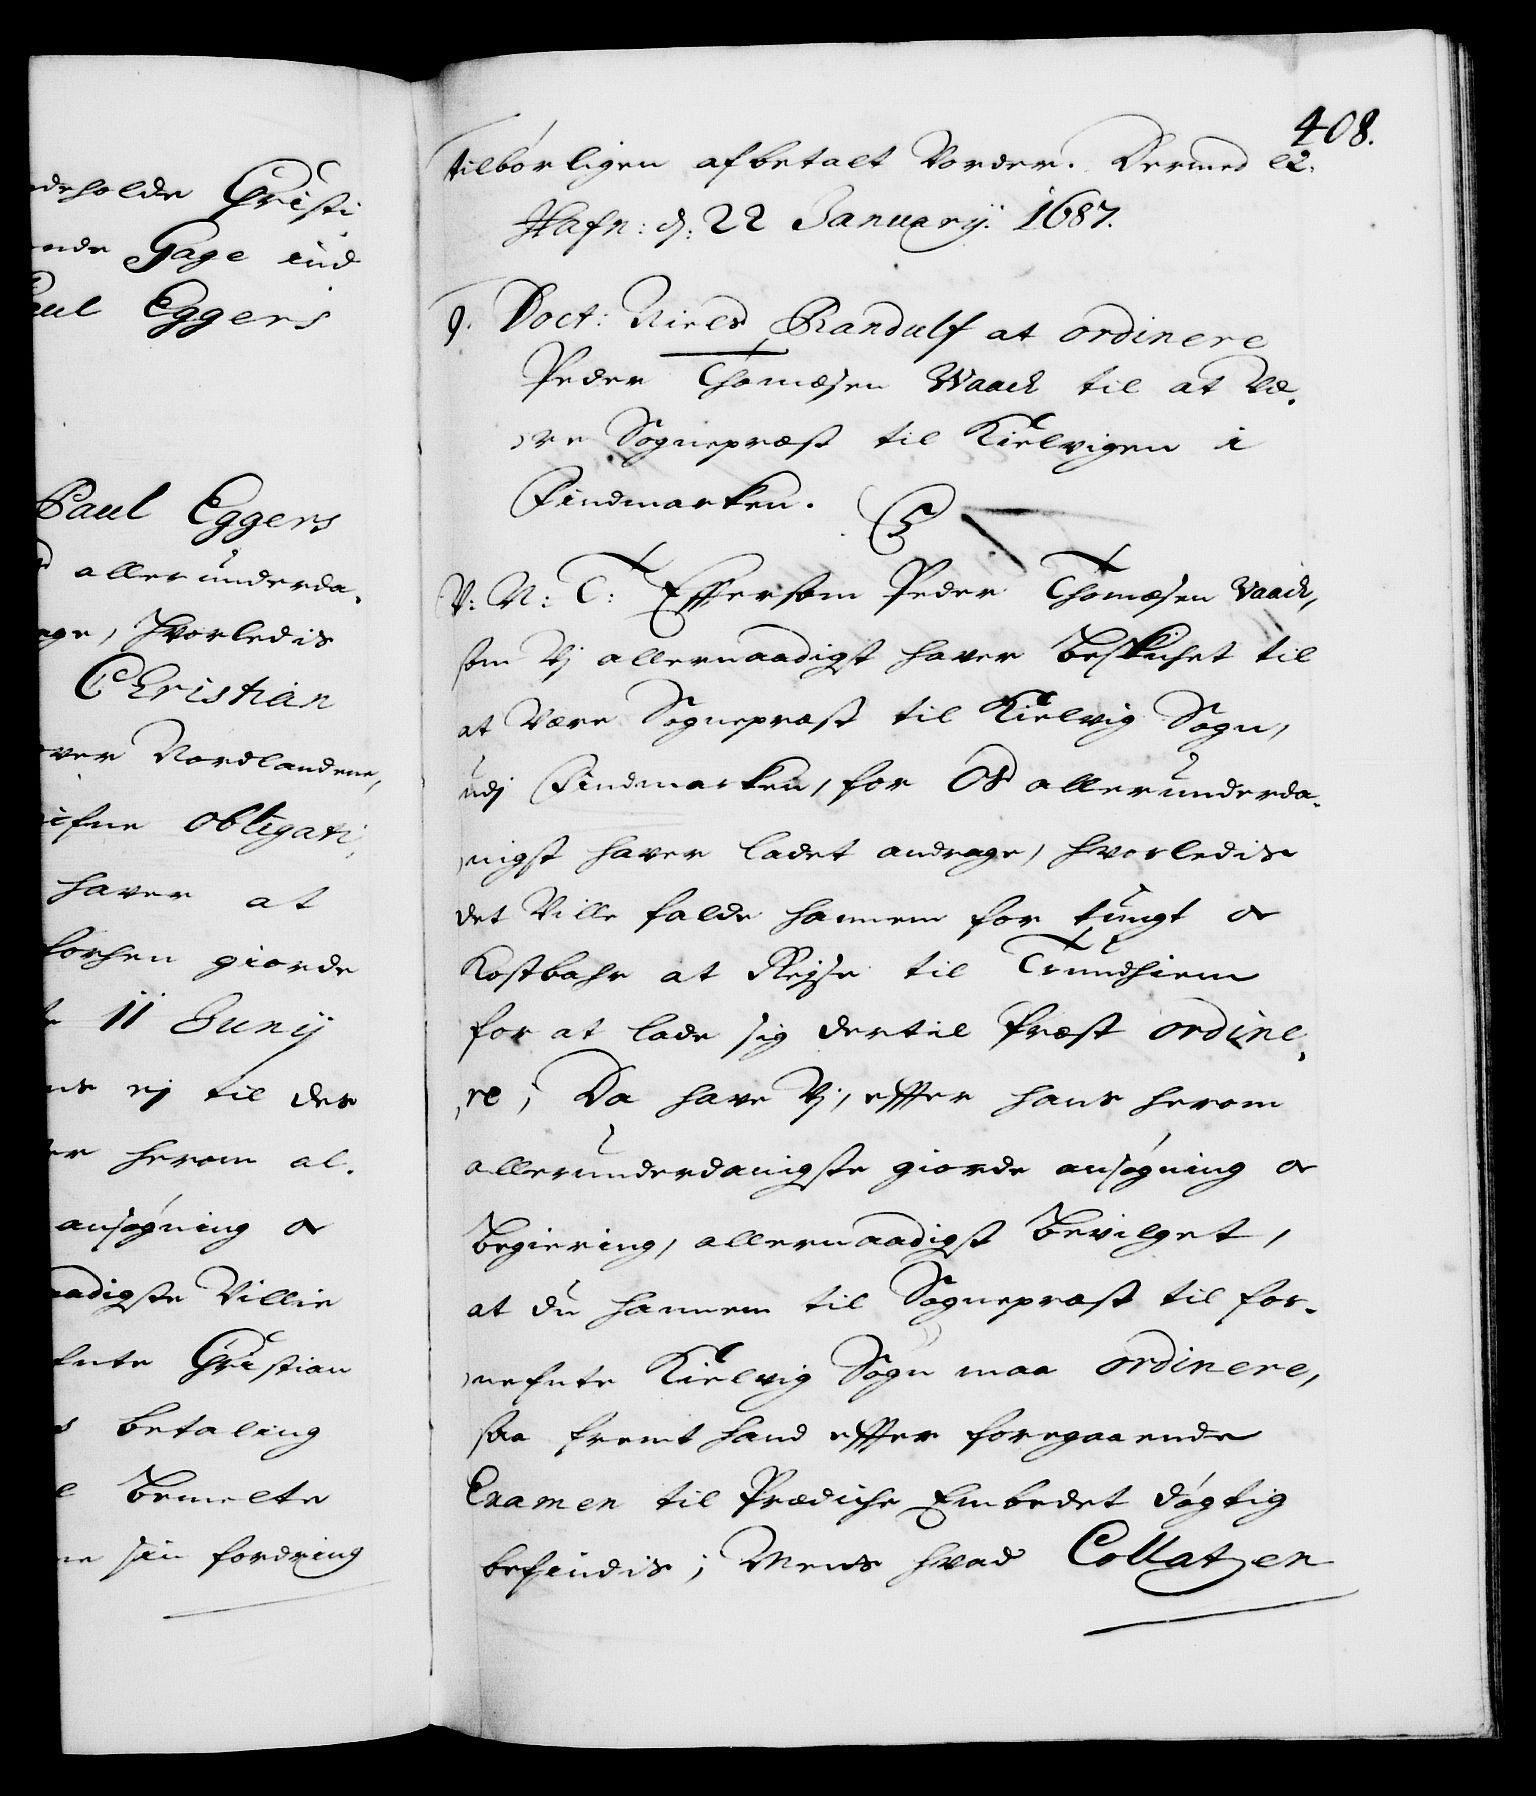 deholde Christi
ende Gage und
Paul Eggers
Paul Eggers
allerunderda,
age, hvorledis
Christian
over Nordlandene,
ifne obligati,
haver at
forhen giorde
11 Junij
ej til des
herom al.
ansøgning &
aadigste Villie
Christian
betaling
Bemelte
sin fordring
408.
tilbørligen afbetalt Vorder. Dermed etc.
Hafn: d: 22 January. 1687.
9. Doct: Niels Randulf at ordinere
Peder Thomæsen Waack til at Væ,
,re Sognepræst til Kielvigen i
Findmarken.
V: N: T: Effersom Peder Thomæsen Vaack,
som Vj allernaadigst haver Beskichet til
at Være Sognepræst til Kielvig Sogn,
udj Findmarken, for Os allerunderda,
,nigst haver ladet andrage, hvorledis
det Ville falde hannem for tungt &
Kostbahr at Rejse til Trundhiem
for at lade sig dertil Præst ordine,
,re, Da have Vj, effter hans herom
allerunderdanigste giorde ansøgning &
Begiering, allernaadigst Bevilget,
at du hannem til Sognepræst til for,
,nefnte Kielvig Sogn maa ordinere,
saa fremt hand effter foregaaende
Examen til Prædiche Embedet døgtig
befindis; Mens hvad Collatzen